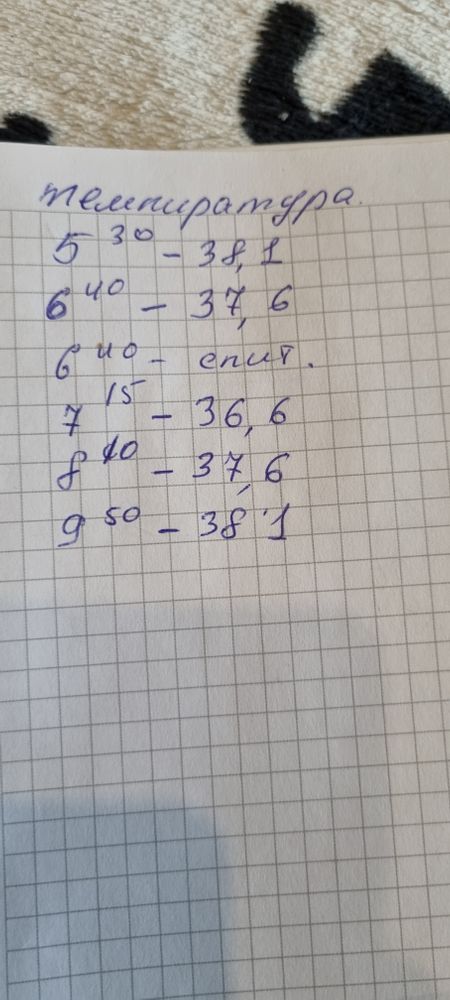 температура.
5 30 - 38,1
6 40 - 37,6
6 40 - спит.
7 15 - 36,6
8 10 - 37,6
9 50 - 38,1